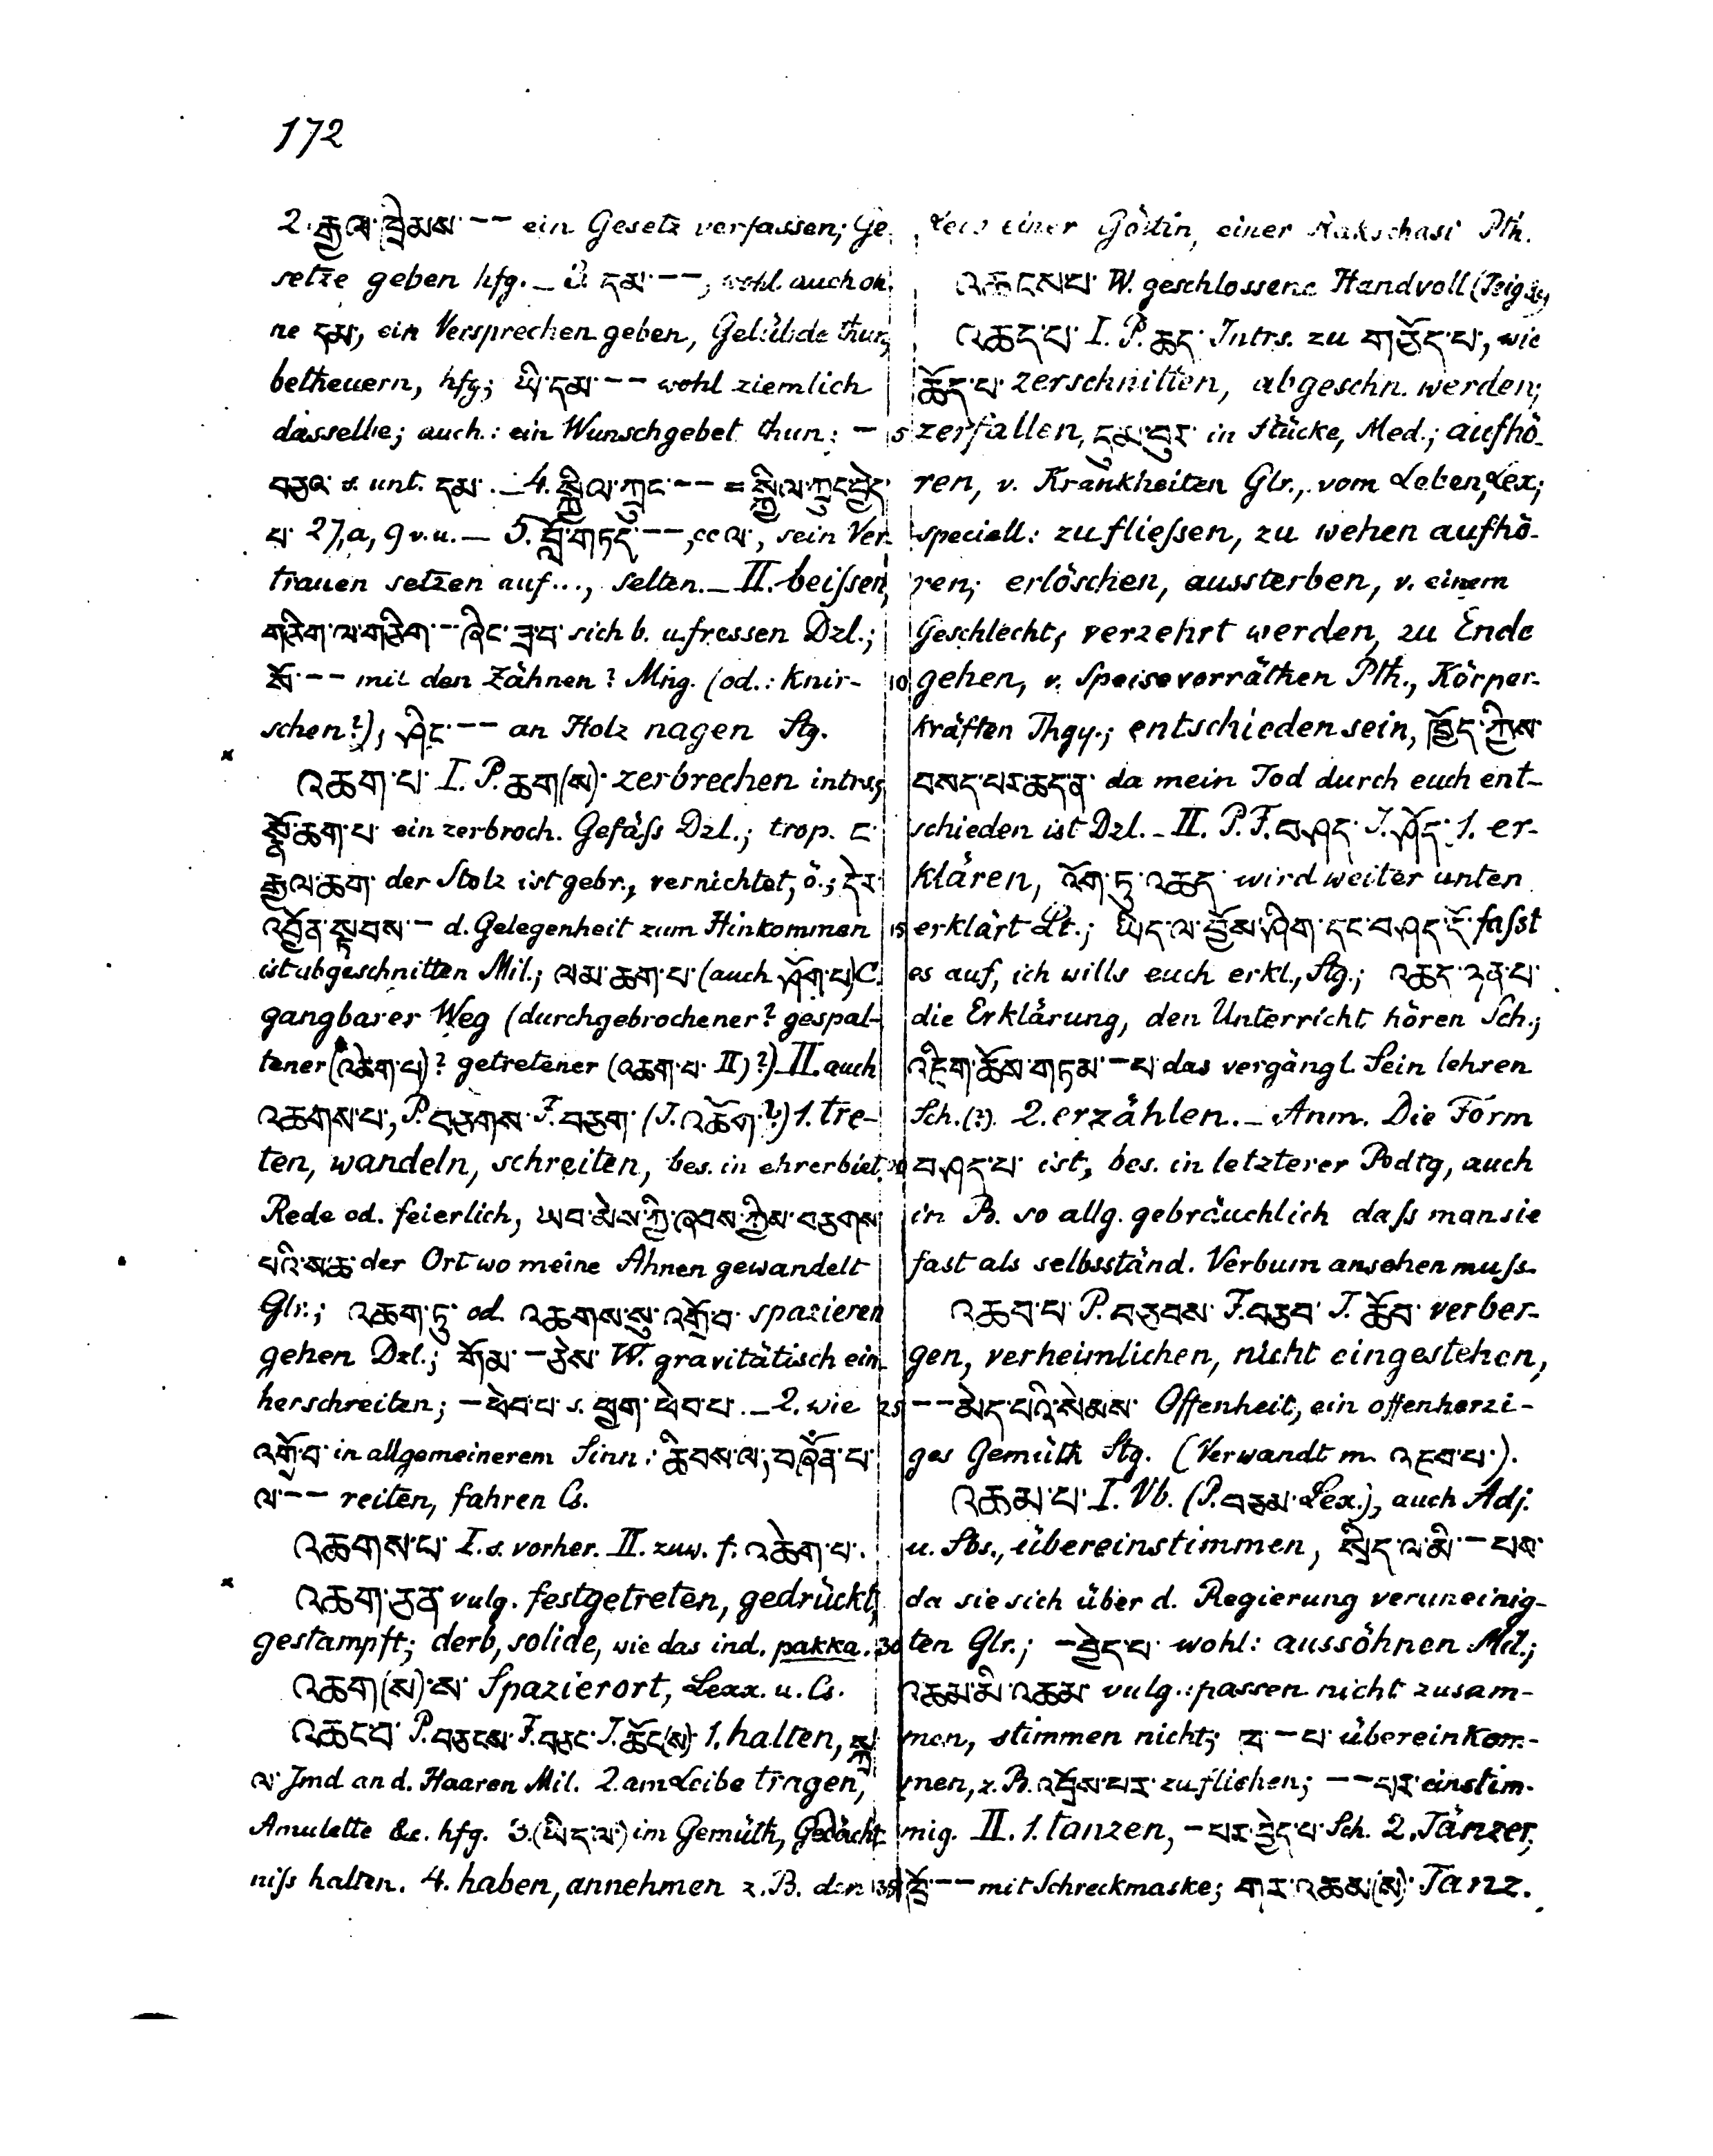 172
2. རྒྱལ་ཁྲིམས་ -- ein Gesetz verfassen; Ge-
setze geben hfg. _ 3. དམ་ --, wohl auch oh-
ne དམ་, ein Versprechen geben, Gelübde thun,
betheuern, hfg; ཡི་དམ་ -- wohl ziemlich
dasselbe; auch: ein Wunschgebet thun: -
བཅའ་ s. unt. དམ་. _ 4. སྐྱིལ་ཀྲུང་ -- = སྐྱིལ་ཀྲུང་བྱེད་
པ་ 27, a, 9 v. u. _ 5. བློ་གཏད་ --, cc ལ་, sein Ver-
trauen setzen auf..., selten. _ II. beissen,
གཅིག་ལ་གཅིག་ - ཞིང་ཟ་བ་ sich b. u. fressen Dzl.;
སོ་ -- mit den Zähnen? Mng. (od.: knir-
schen?), ཤིང་ -- an Holz nagen Stg.
འཆག་པ་ I. P. ཆག(ས)་ zerbrechen intrs,
སྣོད་ཆག་པ་ ein zerbroch. Gefäss Dzl.; trop. ང་
རྒྱལ་ཆག་ der Stolz ist gebr., vernichtet, ö.; དེར་
འབྱོན་སྟབས་ - d. Gelegenheit zum Hinkommen
ist abgeschnitten Mil.; ལམ་ཆག་པ་ (auch ཤོག་པ) C.
gangbarer Weg (durchgebrochener? gespal-
tener (འཆེག་པ)? getretener (འཆག་པ་ II)?) _ II. auch
འཆགས་པ་, P. བཅགས་ F. བཅག་ (J. འཆོག་?) 1. tre-
ten, wandeln, schreiten, bes. in ehrerbiet.
Rede od. feierlich, ཡབ་མེས་ཀྱི་ཞབས་ཀྱིས་བཅགས་
པའི་ས་ཆ་ der Ort wo meine Ahnen gewandelt
Glr.; འཆག་ཏུ་ od. འཆགས་སུ་འགྲོ་བ་ spazieren
gehen Dzl.; གོམ་ - ཅེས་ W. gravitätisch ein-
herschreiten; - ཕེབ་པ་ s. ཕྱག་ཕེབ་པ་. _ 2. wie
འགྲོ་བ་ in allgemeinerem Sinn: ཆིབས་ལ་, བཞོན་པ་
ལ་ -- reiten, fahren Cs.
འཆགས་པ་ I. s. vorher. II. zuw. f. འཆེག་པ་.
འཆག་ཅན་ vulg. festgetreten, gedrückt,
gestampft; derb, solide, wie das ind. pakka.
འཆག(ས)་ས་ Spazierort, Lexx. u. Cs.
འཆང་བ་ P. བཅངས་ F. བཅང་ J. ཆོང(ས)་ 1. halten, སྐྲ་
ལ་ Jmd an d. Haaren Mil. 2. am Leibe tragen,
Amulette &c. hfg. 3. (ཡིད་ལ་) im Gemüth, Gedächt-
niss halten. 4. haben, annehmen z. B. den
einer Göttin, einer Rakschasi Pth.
འཆངས་པ་ W. geschlossene Handvoll (Teig &c)
འཆད་པ་ I. P. ཆད་ Intrs. zu གཅོད་པ་, wie
ཆོད་པ་ zerschnitten, abgeschn. werden;
5 zerfallen, དུམ་བུར་ in Stücke, Med.; aufhö-
ren, v. Krankheiten Glr., vom Leben, Lex;
speciell: zu fliessen, zu wehen aufhö-
ren; erlöschen, aussterben, v. einem
Geschlecht; verzehrt werden, zu Ende
10 gehen, v. Speisevorräthen Pth., Körper-
kräften Thgy.; entschieden sein, ཁྱོད་ཀྱིས་
བསད་པར་ཆད་ན་ da mein Tod durch euch ent-
schieden ist Dzl. _ II. P. F. བཤད་ J. ཤོད་ 1. er-
klären, འོག་ཏུ་འཆད་ wird weiter unten
15 erklärt Lt.; ཡིད་ལ་བྱོས་ཤིག་དང་བཤད་དོ་ fasst
es auf, ich wills euch erkl., Stg.; འཆད་ཉན་པ་
die Erklärung, den Unterricht hören Sch.;
འཇིག་ཚོས་གཏམ་ - པ་ das vergängl. Sein lehren
Sch. (?). 2. erzählen. _ Anm. Die Form
20 བཤད་པ་ ist, bes. in letzterer Bdtg, auch
in B. so allg. gebräuchlich dass man sie
fast als selbsständ. Verbum ansehen muss.
འཆབ་པ་ P. བཅབས་ F. བཅབ་ J. ཆོབ་ verber-
gen, verheimlichen, nicht eingestehen,
25 -- མེད་པའི་སེམས་ Offenheit, ein offenherzi-
ges Gemüth Stg. (Verwandt m. འཇབ་པ་).
འཆམ་པ་ I. Vb. (P. བཅམ་ Lex.), auch Adj.
u. Sbs., übereinstimmen, སྲིད་ལ་མི་ - པས་
da sie sich über d. Regierung veruneinig-
30 ten Glr.; - བྱེད་པ་ wohl: aussöhnen Mil.;
འཆམ་མི་འཆམ་ vulg.: passen nicht zusam-
men, stimmen nicht; ཁ་ - པ་ übereinkom-
men, z. B. འབྲོས་པར་ zu fliehen; -- པར་ einstim-
mig. II. 1. tanzen, - པར་བྱེད་པ་ Sch. 2. Tänzer,
35 ཁྲོ་ -- mit Schreckmaske; གར་འཆམ(ས)་ Tanz.